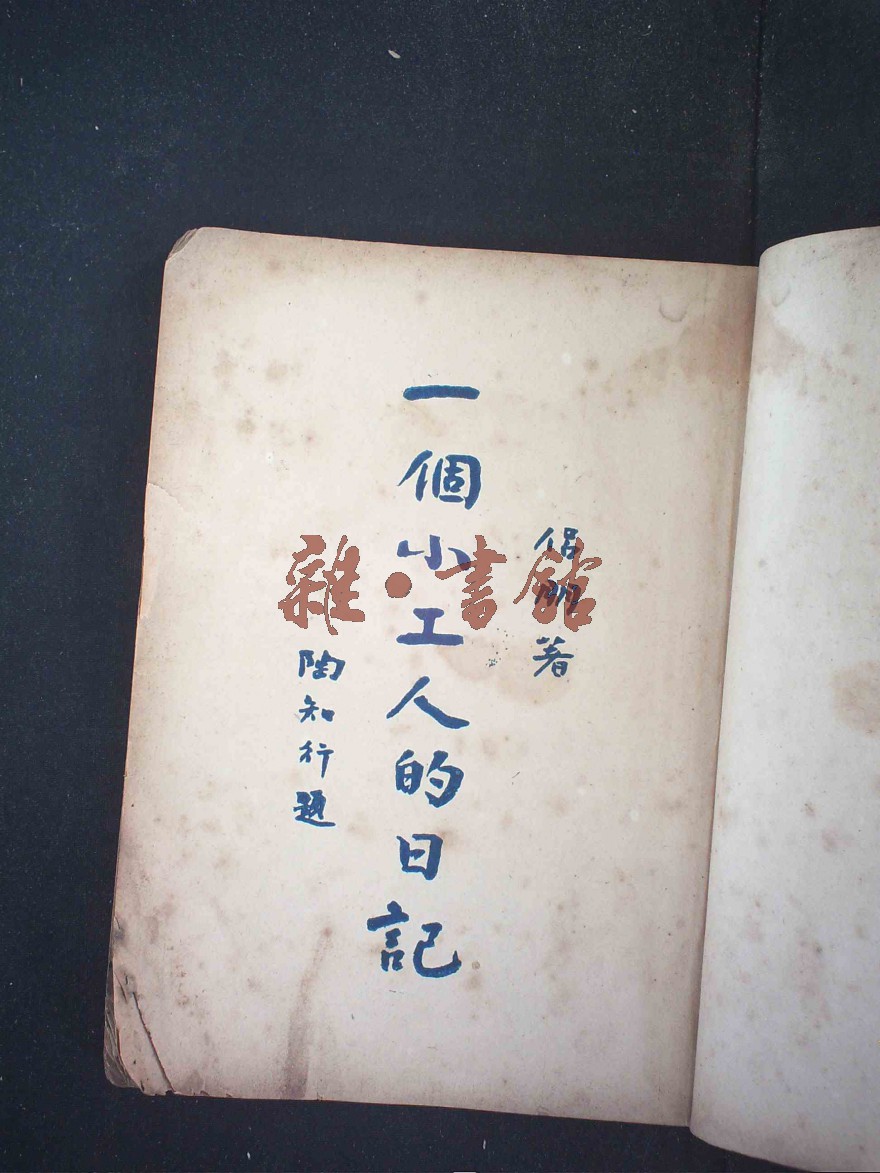 侣朋著
一個小工人的日記
陶知行題
雜•書館